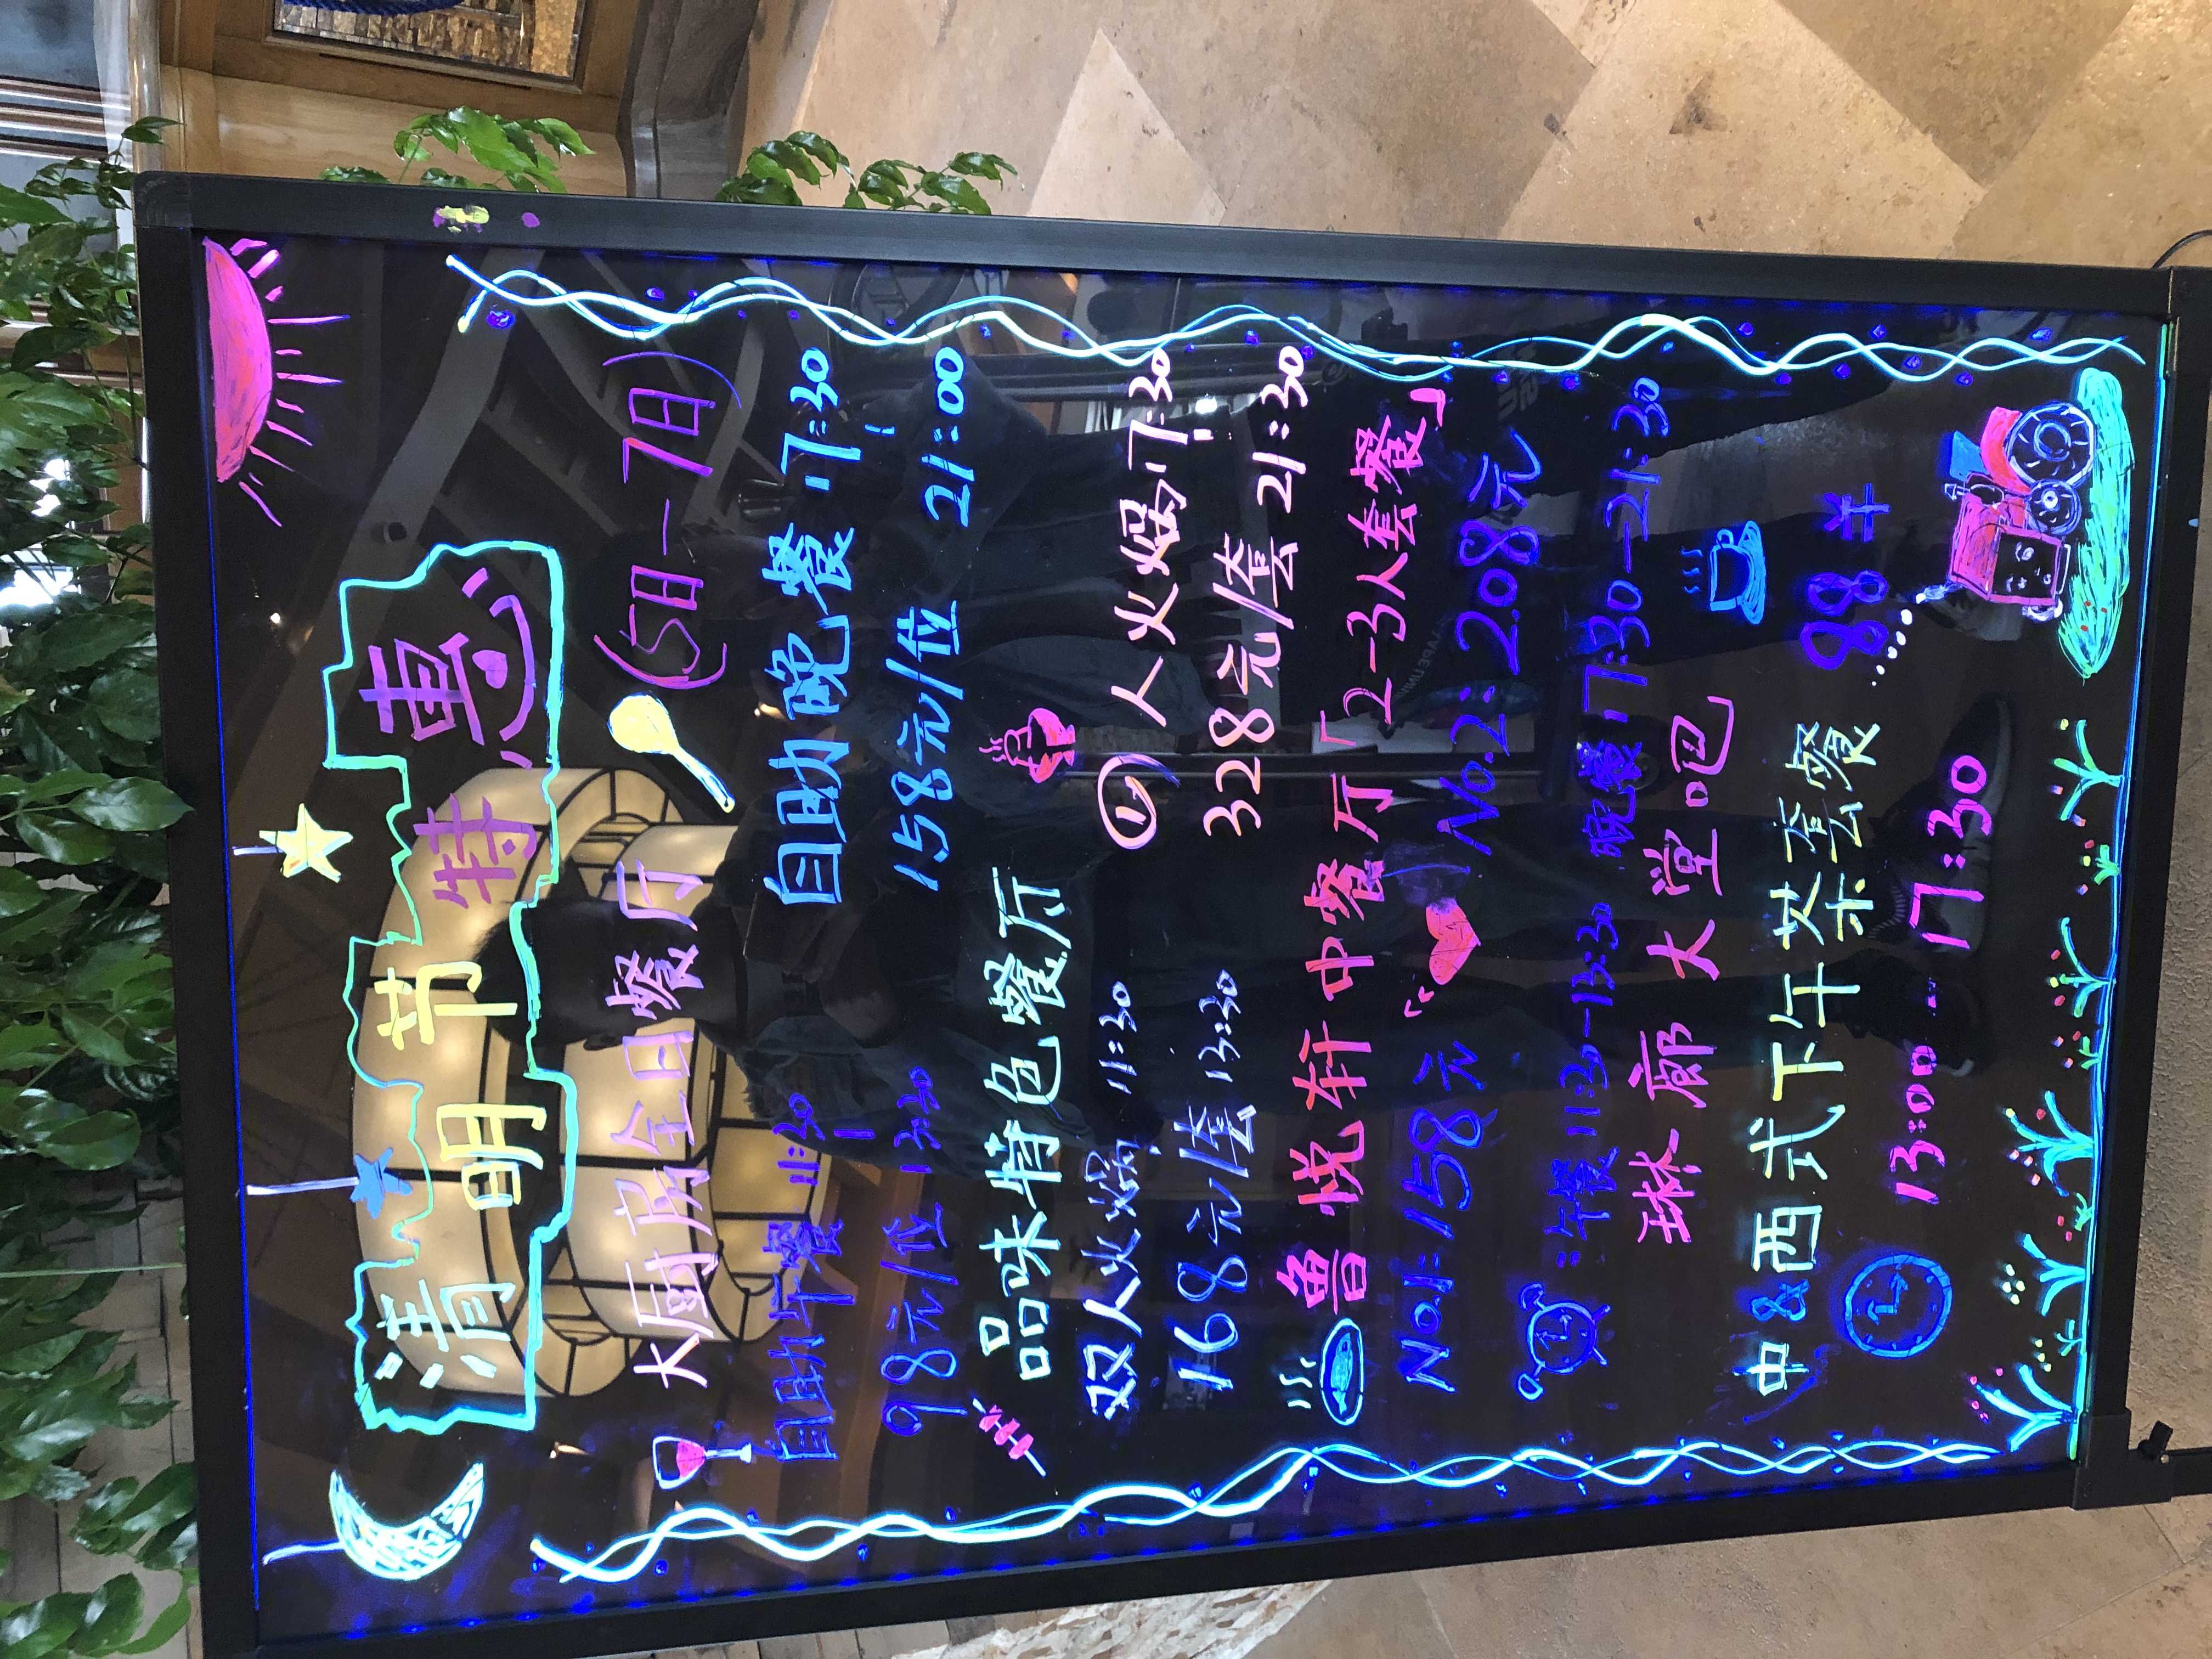 清明节特惠
大厨房全日餐厅 (5日—7日)
自助午餐 11:30
|
98元/位 13:30
自助晚餐 17:30
|
158元/位 21:00
品味特色餐厅
双人火煱 11:30
168元/套 13:30
四人火煱 17:30
|
328元/套 21:30
鲁悦轩中餐厅「2-3人套餐」
No.1: 158元 No.2: 208元
: 午餐 11:30-13:30 晚餐 17:30—21:30
琳廊大堂吧
中&西式下午茶套餐 88¥
13:00 - 17:30